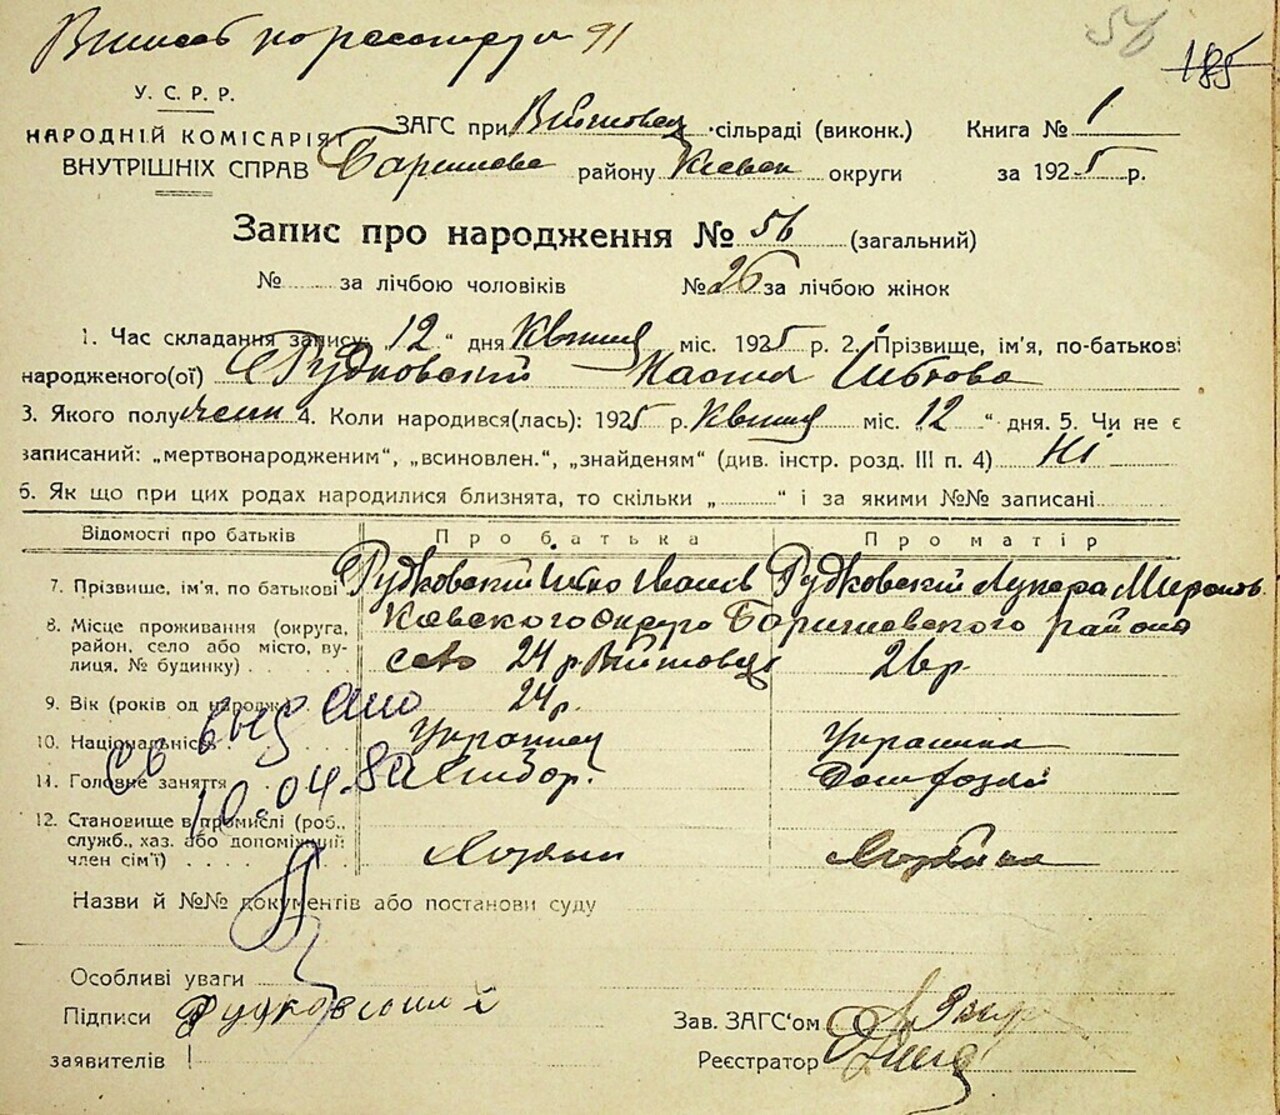 91
56
185
У. С. Р. Р.
НАРОДНІЙ КОМІСАРІЯТ
ВНУТРІШНІХ СПРАВ
ЗАГС при Війтовец. сільраді (виконк.)
Книга № 1
району Киевск округи
за 1925 р.
Запис про народження № 56 (загальний)
№ за лічбою чоловіків № 26 за лічбою жінок
1. Час складання запису: „12“ дня Квітня міс. 1925 р. 2. Прізвище, ім'я, по-батькові
народженого(ої) Рудковский
3. Якого полу жен 4. Коли народився(лась): 1925 р. Квітня міс. „12“ дня. 5. Чи не є
записаний: „мертвонародженим“, „всиновлен.“, „знайденям“ (див. інстр. розд. III п. 4) Ні
6. Як що при цих родах народилися близнята, то скільки „ “ і за якими №№ записані
Відомості про батьків
Про батька
Про матір
7. Прізвище, ім'я, по батькові Рудковский Рудковский
8. Місце проживання (округа, район, село або місто, вулиця, № будинку)
Киевского Баришевского района
село 24 р. Війтовці 26 р.
9. Вік (років од народж.) 24 р.
10. Національність Украинец Украинка
11. Головне заняття Хлибор.
12. Становище в промислі (роб., служб., хаз. або допоміжний член сім'ї) Хозяин Хозяйка
Св выдано
10.04.80
Назви й №№ документів або постанови суду
Особливі уваги
Підписи Рудковский
заявителів
Зав. ЗАГС'ом
Реєстратор